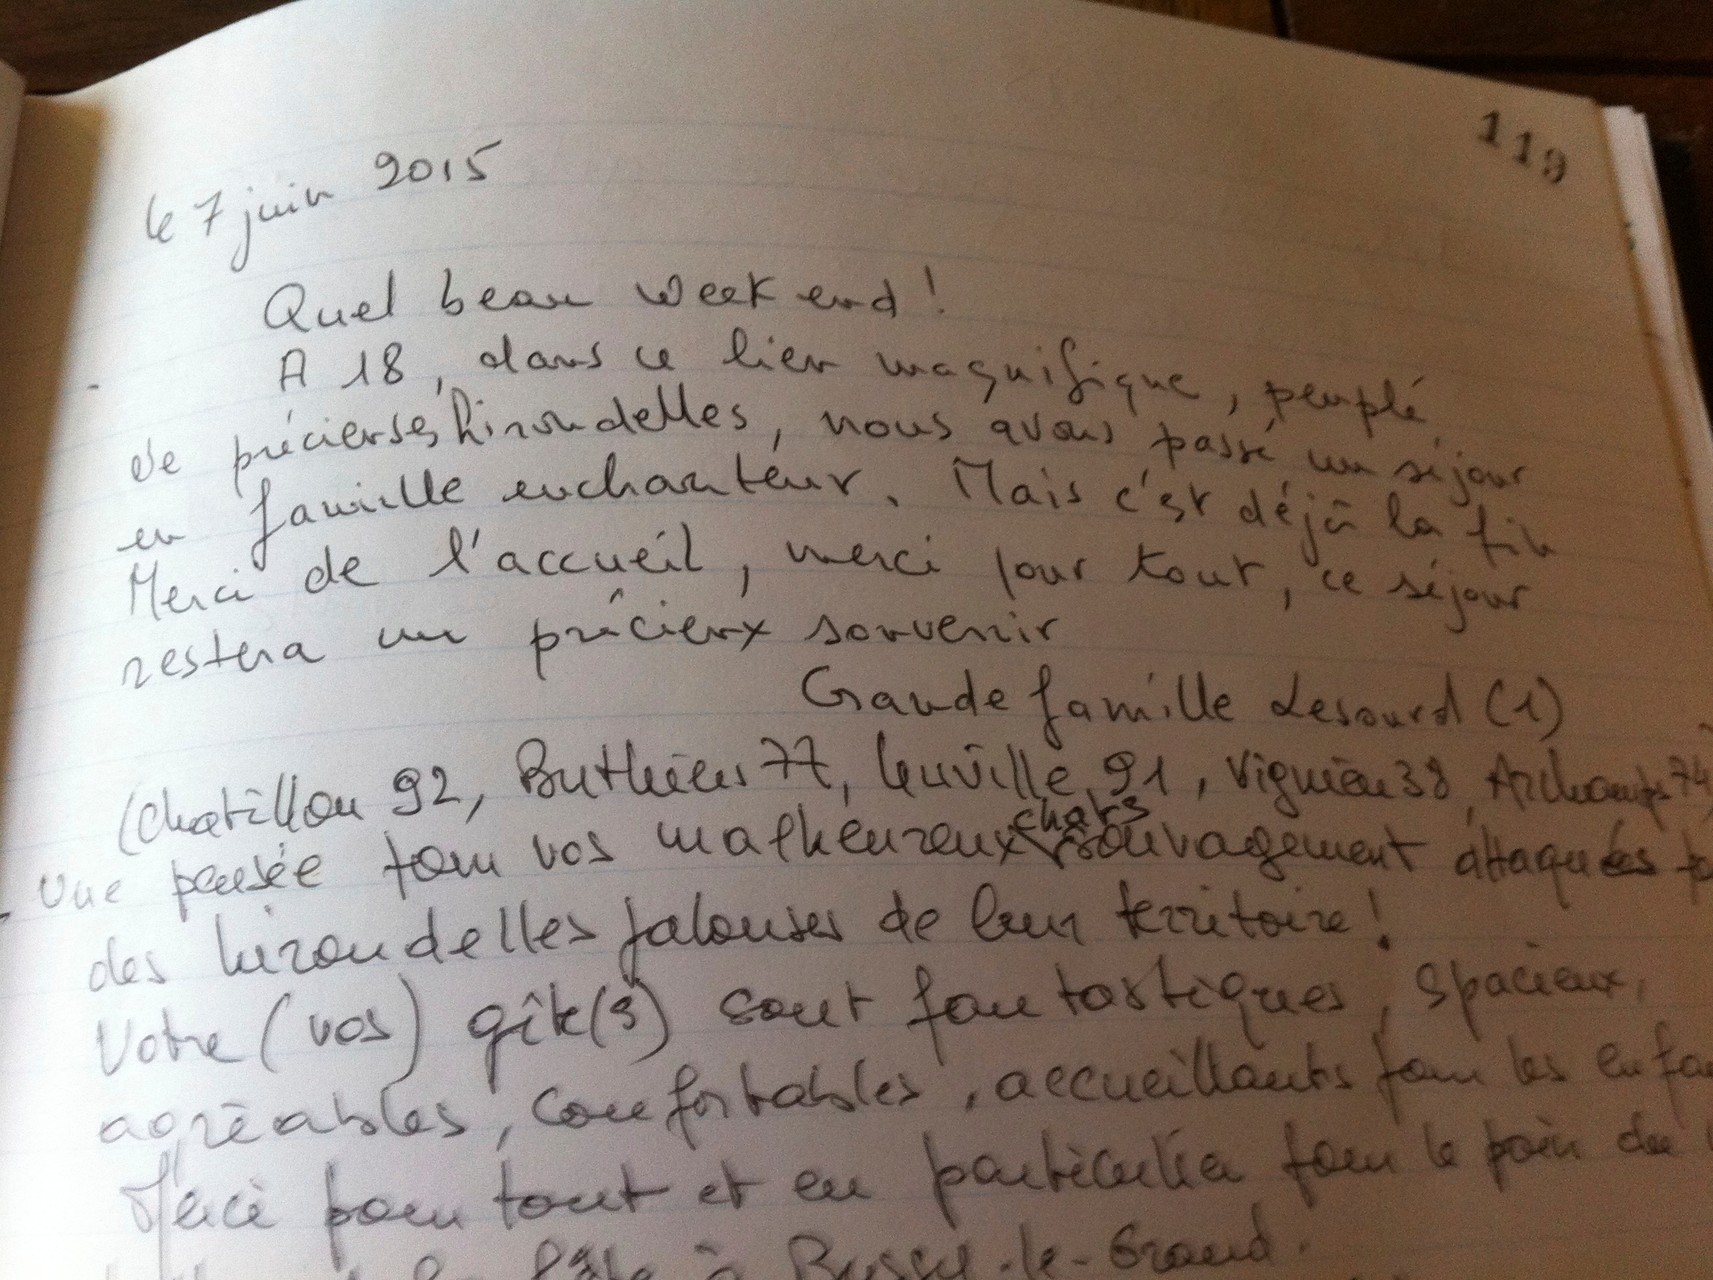 119
le 7 juin 2015
Quel beau week end !
A 18, dans ce lieu magnifique, peuplé
de précieuses hirondelles, nous avons passé un séjour
en famille enchanteur. Mais c'est déjà la fin
Merci de l'accueil, merci pour tout, ce séjour
restera un précieux souvenir
Grande famille Lesourd (1)
(Chatillon 92, Buthiers 77, Leuville 91, Vignieu 38, Archamps 74)
Une pensée pour vos malheureux chats sauvagement attaqués
des hirondelles jalouses de leur territoire !
Votre (vos) gîte(s) sont fantastiques, spacieux,
agréables, confortables, accueillants pour les
Merci pour tout et en particulier pour le pain du
à Bussy-le-Grand.